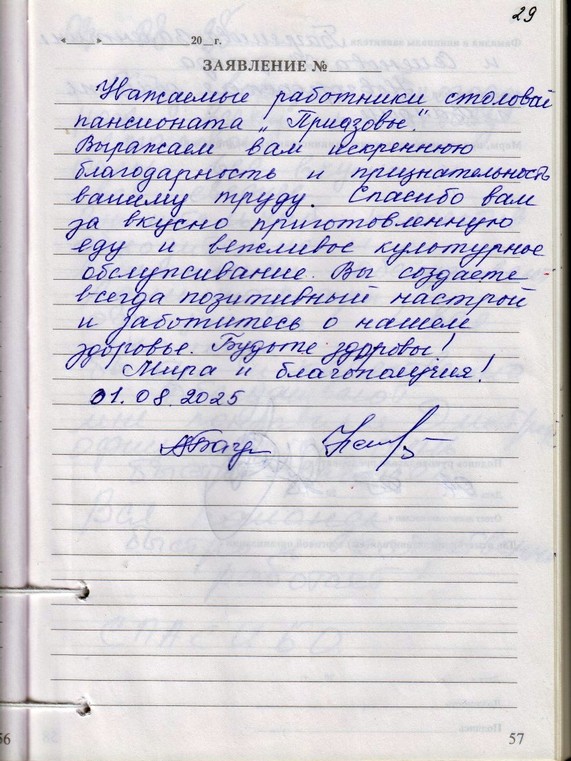 29
« » 20 г.
ЗАЯВЛЕНИЕ №
Уважаемые работники столовой
пансионата „Приазовье".
Выражаем вам искреннюю
благодарность и признательность
вашему труду. Спасибо вам
за вкусно приготовленную
еду и вежливое культурное
обслуживание. Вы создаете
всегда позитивный настрой
и заботитесь о нашем
здоровье. Будьте здоровы!
Мира и благополучия!
01.08.2025
56
57